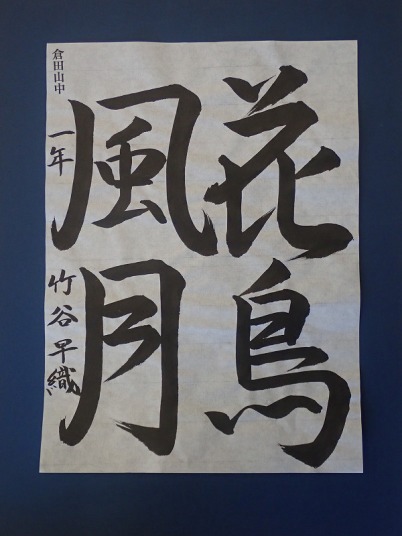 花鳥
風月
倉田山中
一年 竹谷早織